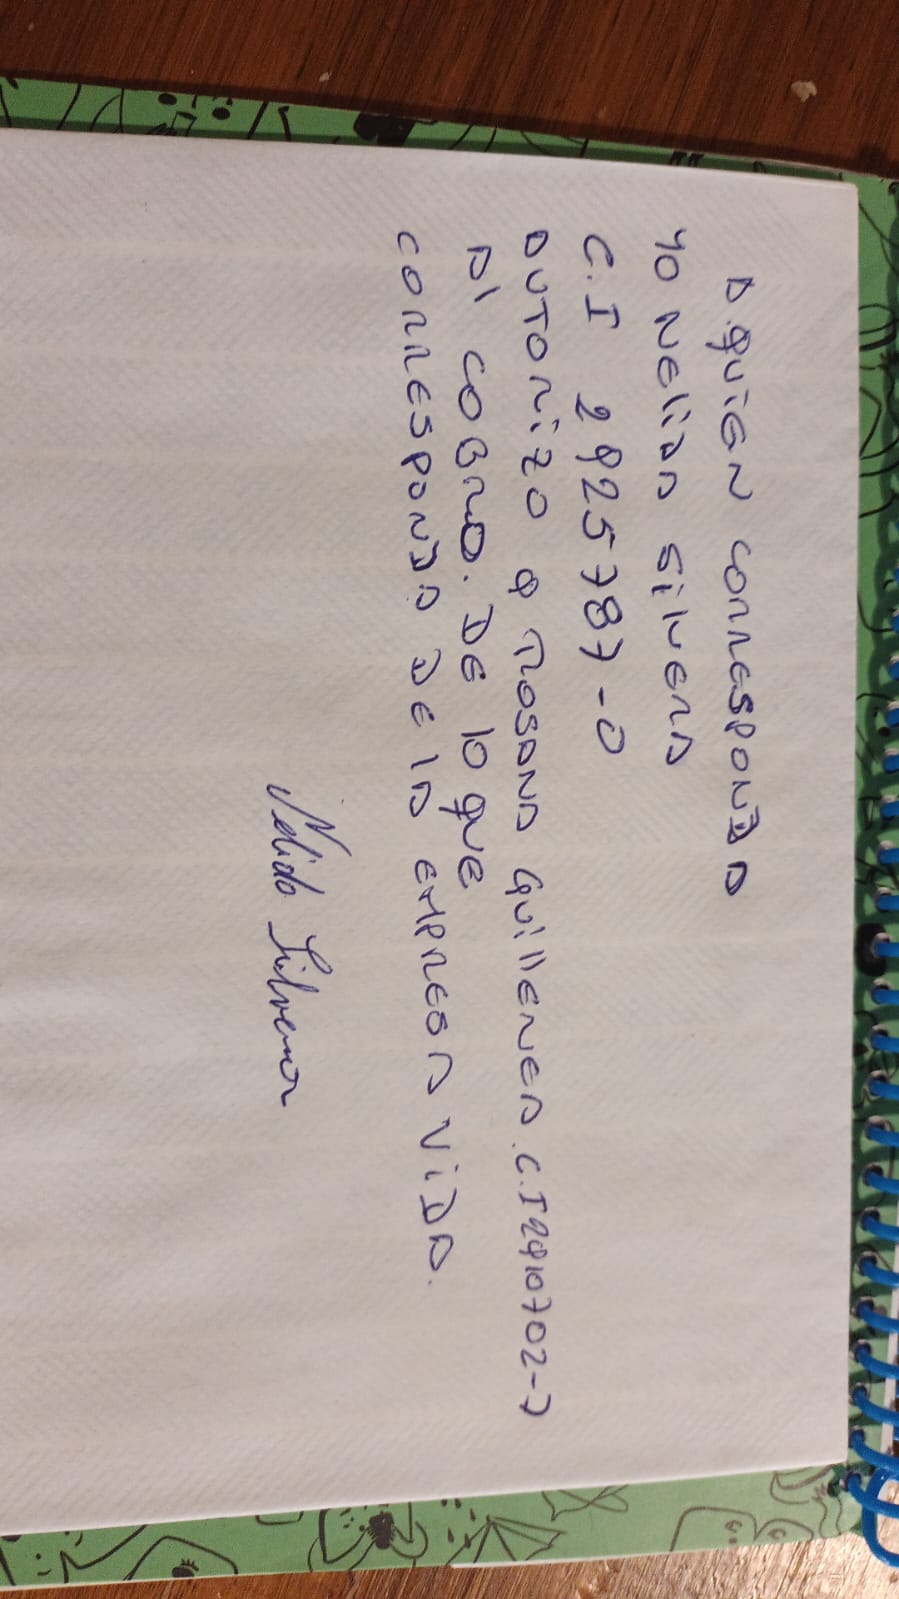 A QUIEN CORRESPONDA
YO NELIDA SILVERA
C.I 2925787-0
AUTORIZO a ROSANA GUILLENEA. C.I 2910702-7
Al COBRO. DE lO QUE
CORRESPONDA DE lA EMPRESA VIDA.
Nelida Silvera